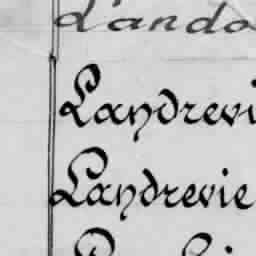 Lando
Landrevi
Landrevie